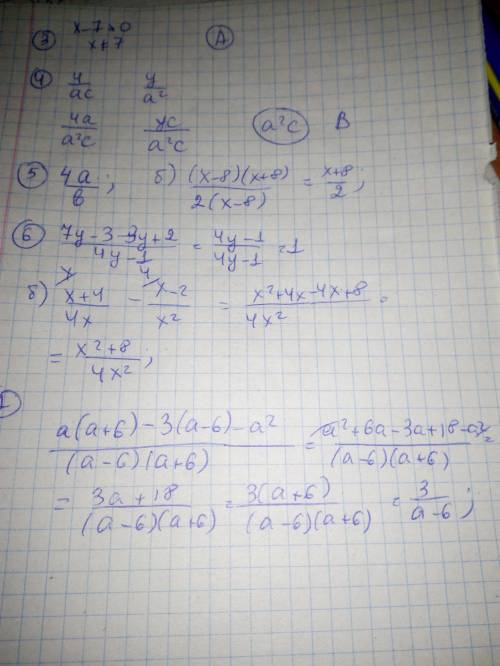 3 x-7≠0 A
x≠7
4 4/ac y/a²
4a/a²c yc/a²c a²c В
5 4a/b; б) (x-8)(x+8)/2(x-8) = x+8/2;
6 7y-3-3y+2/4y-1 = 4y-1/4y-1 = 1
б) x+4/4x - x-2/x² = x²+4x-4x+8/4x² =
= x²+8/4x²;
a(a+6)-3(a-6)-a²/(a-6)(a+6) = a²+6a-3a+18-a²/(a-6)(a+6) =
= 3a+18/(a-6)(a+6) = 3(a+6)/(a-6)(a+6) = 3/a-6;